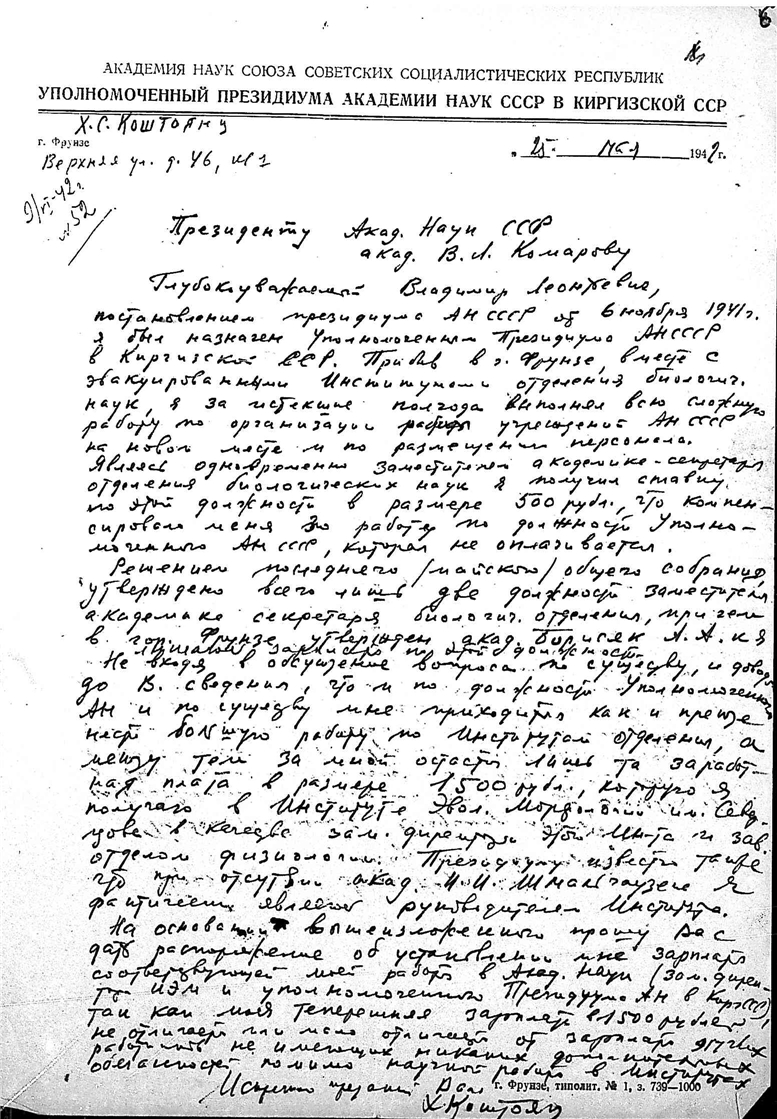 6
АКАДЕМИЯ НАУК СОЮЗА СОВЕТСКИХ СОЦИАЛИСТИЧЕСКИХ РЕСПУБЛИК
УПОЛНОМОЧЕННЫЙ ПРЕЗИДИУМА АКАДЕМИИ НАУК СССР В КИРГИЗСКОЙ ССР
Х.С. Коштоянц
г. Фрунзе
Верхняя ул. д. 46, кв 1
„ 25 мая 1942 г.
9/VI-42 г.
№ 52
Президенту Акад. Наук СССР
акад. В. Л. Комарову
Глубокоуважаемый Владимир Леонтьевич,
постановлением президиума АН СССР от 6 ноября 1941 г.
я был назначен Уполномоченным Президиума АН СССР
в Киргизской ССР. Прибыв в г. Фрунзе, вместе с
эвакуированными Институтами отделения биологич.
наук, я за истекшие полгода выполнял всю сложную
работу по организации работы учреждений АН СССР
на новом месте и по размещению персонала.
Являясь одновременно заместителем академика-секретаря
отделения биологических наук я получал ставку
по этой должности в размере 500 рубл., что компен-
сировало меня за работу по должности Уполно-
моченного АН СССР, которая не оплачивается.
Решением последнего /майского/ общего собрания,
утверждено всего лишь две должности заместителя
академика секретаря биологич. отделения, при чем
в гор. Фрунзе утвержден акад. Борисяк А. А. и я
лишался зарплаты по этой должности.
Не входя в обсуждение вопроса по существу, я довожу
до В. сведения, что и по должности Уполномоченного
АН и по существу мне приходится как и прежде
нести большую работу по Институтам отделения, а
между тем за мной остается лишь та заработ-
ная плата в размере 1500 рубл., которую я
получаю в Институте Эвол. Морфологии им. Север-
цова в качестве зам. директора этого Ин-та и зав.
отделом физиологии. Президиуму известно также
что при отсутствии акад. И. И. Шмальгаузена я
фактически являюсь руководителем Института.
На основании вышеизложенного прошу Вас
дать распоряжение об установлении мне зарплаты
соответствующей моей работе в Акад. Наук (зам. дирек-
тора ИЭМ и уполномоченного Президиума АН в Кирг ССР),
так как моя теперешняя зарплата в 1500 рублей
не отличается или мало отличается от зарплаты других
работников не имеющих никаких дополнительных
обязанностей помимо научной работы в Институтах
Искренно преданный Вам
г. Фрунзе, типолит. № 1, з. 739—1000
Х. Коштоянц